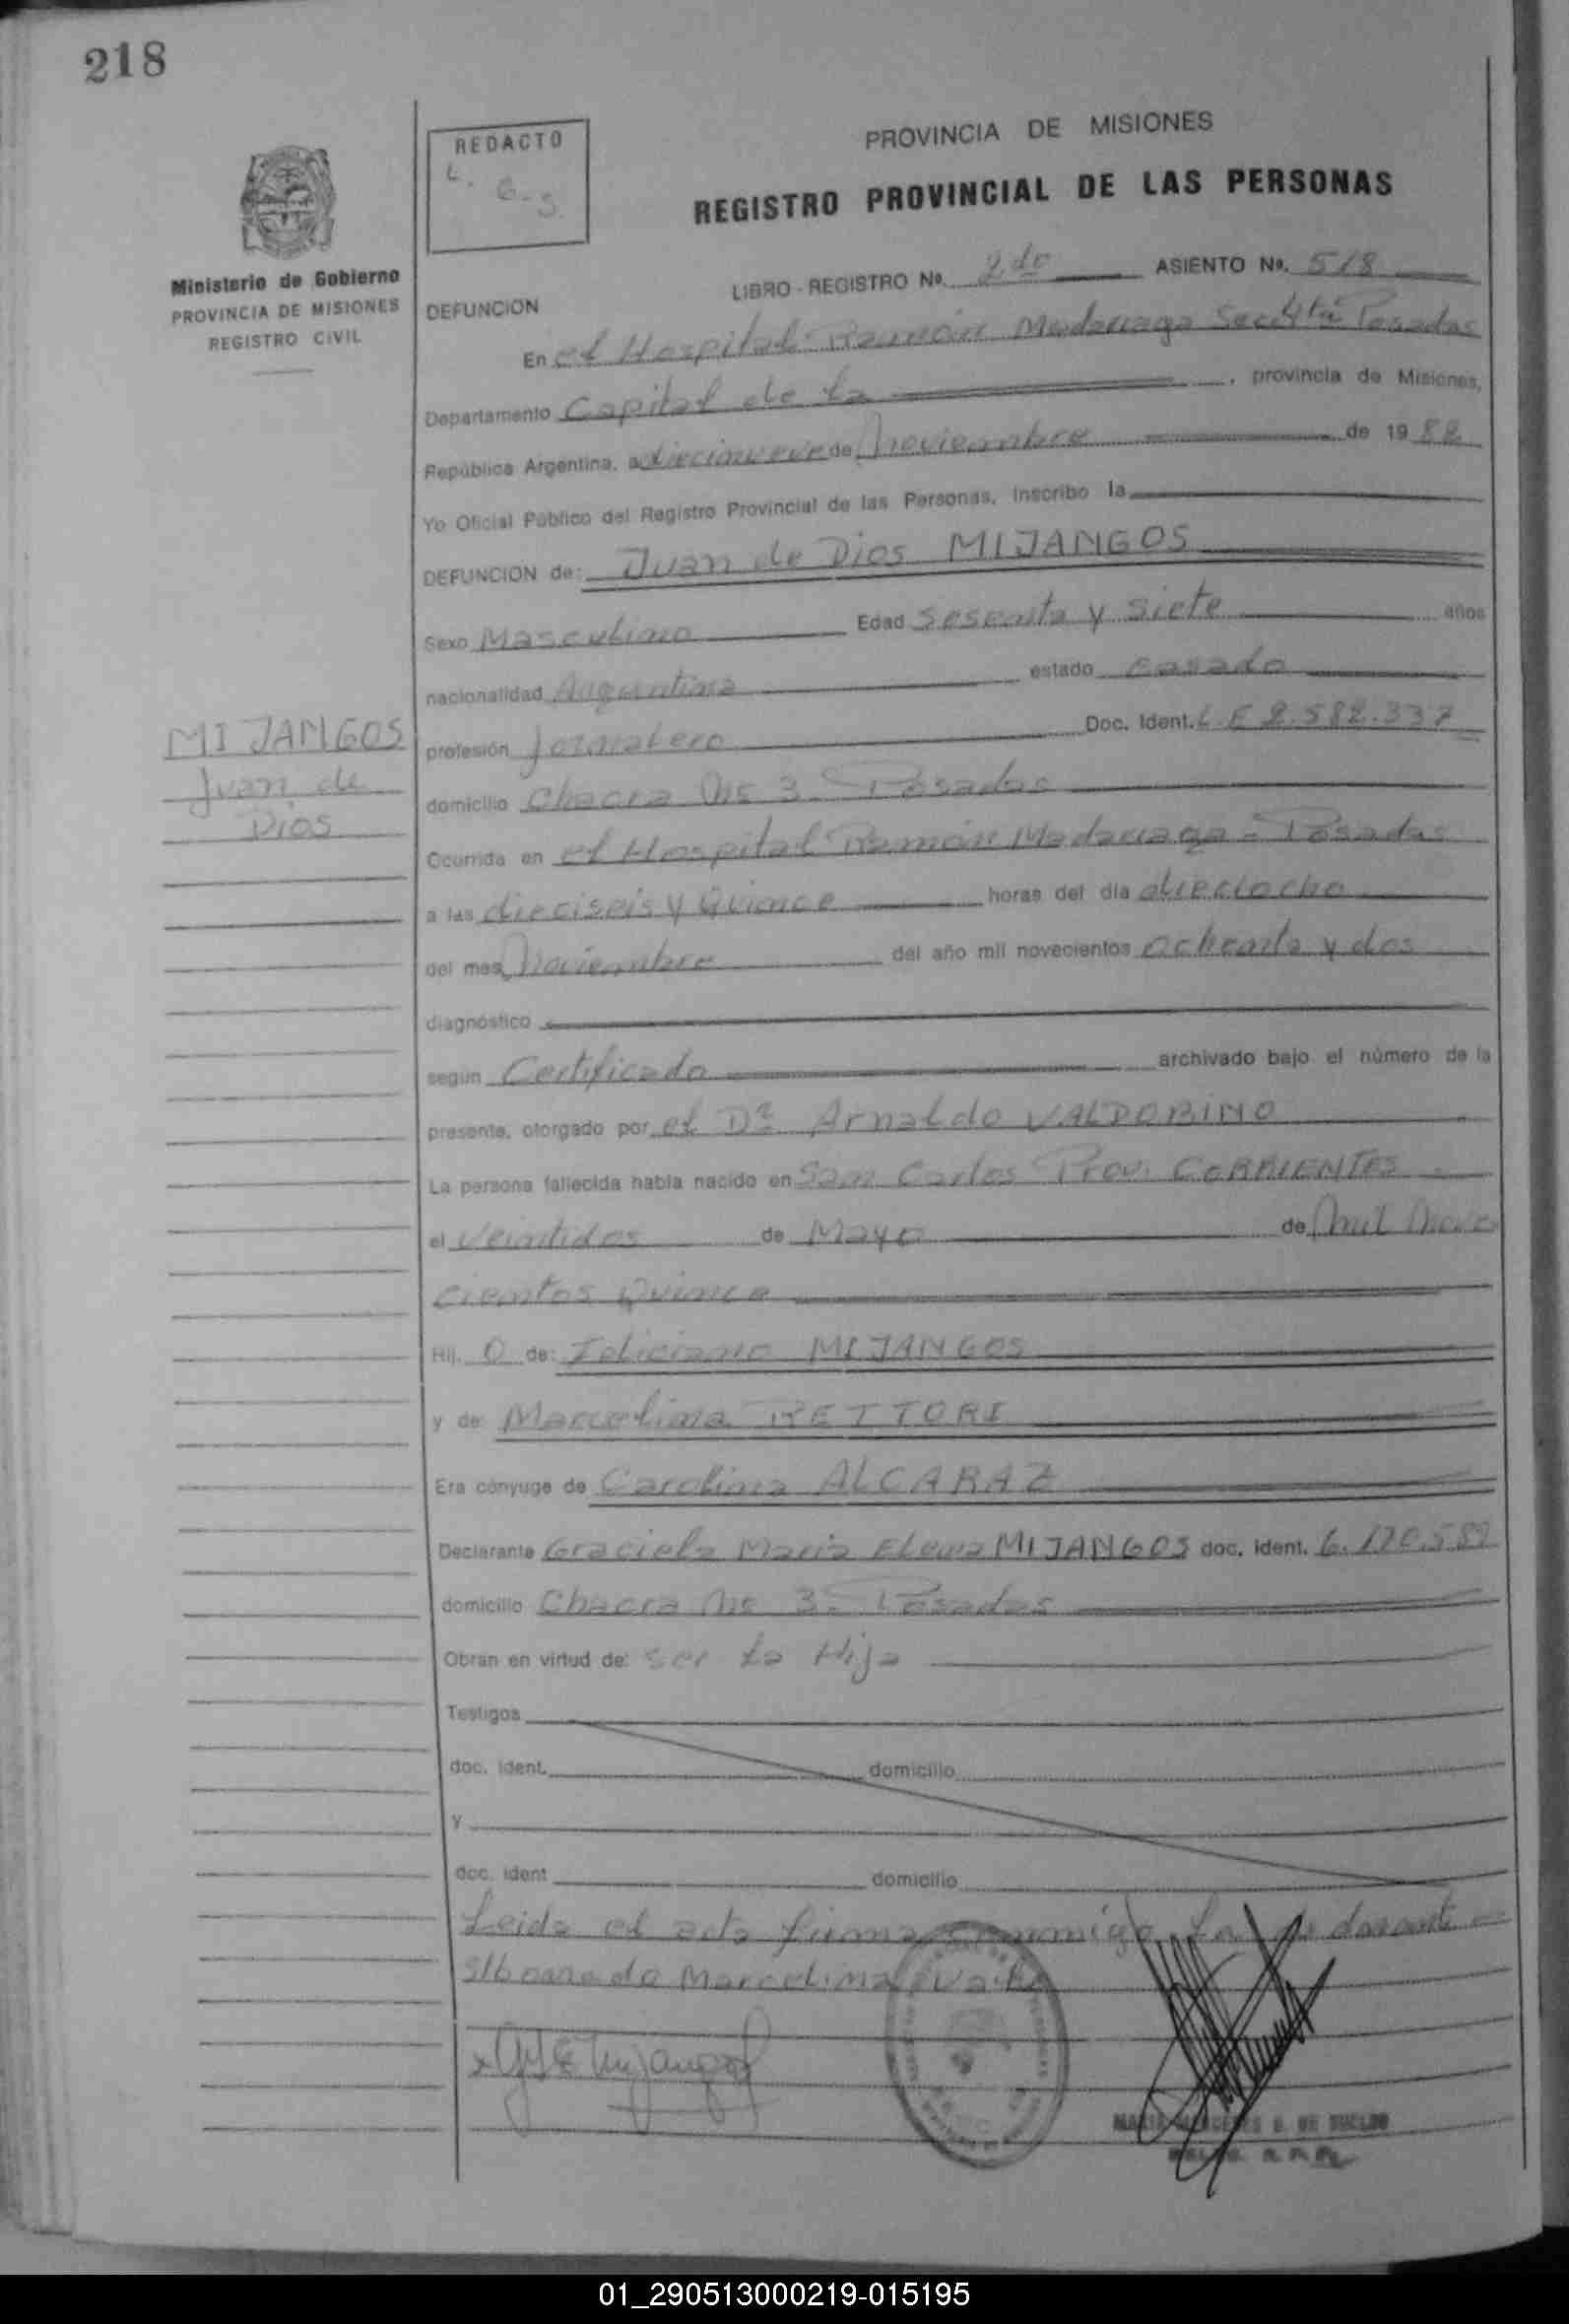 218
REDACTO
L. G. S.
PROVINCIA DE MISIONES
REGISTRO PROVINCIAL DE LAS PERSONAS
Ministerio de Gobierno
PROVINCIA DE MISIONES
REGISTRO CIVIL
LIBRO - REGISTRO No. 2do ASIENTO No. 518
DEFUNCION
En el Hospital Ramón Madariaga Secc 4ta Posadas
Departamento Capital de la , provincia de Misiones,
República Argentina, a diecinueve de noviembre de 1982
Yo Oficial Público del Registro Provincial de las Personas, inscribo la
DEFUNCION de: Juan de Dios MIJANGOS
Sexo Masculino Edad sesenta y siete años
nacionalidad Argentina estado casado
MIJANGOS
Juan de
Dios
profesión Jornalero Doc. Ident. L.E 2.582.337
domicilio Chacra No 3 - Posadas
Ocurrida en el Hospital Ramón Madariaga - Posadas
a las dieciseis y Quince horas del día dieciocho
del mes noviembre del año mil novecientos ochenta y dos
diagnóstico
según Certificado archivado bajo el número de la
presente, otorgado por el Dr Arnaldo VALDOBINO
La persona fallecida había nacido en San Carlos Prov. CORRIENTES
el veintidos de Mayo de mil nove
cientos Quince
Hij. o de: Feliciano MIJANGOS
y de: Marcelina RETTORI
Era cónyuge de Carolina ALCARAZ
Declarante Graciela Maria Elena MIJANGOS doc. ident. 6.170.589
domicilio Chacra No 3 - Posadas
Obran en virtud de: ser la Hija
Testigos
doc. ident. domicilio
y
doc. ident domicilio
Leida el acta firma conmigo la
Marcelina Vale
MARIA MERCEDES DE SUELDO
01_290513000219-015195